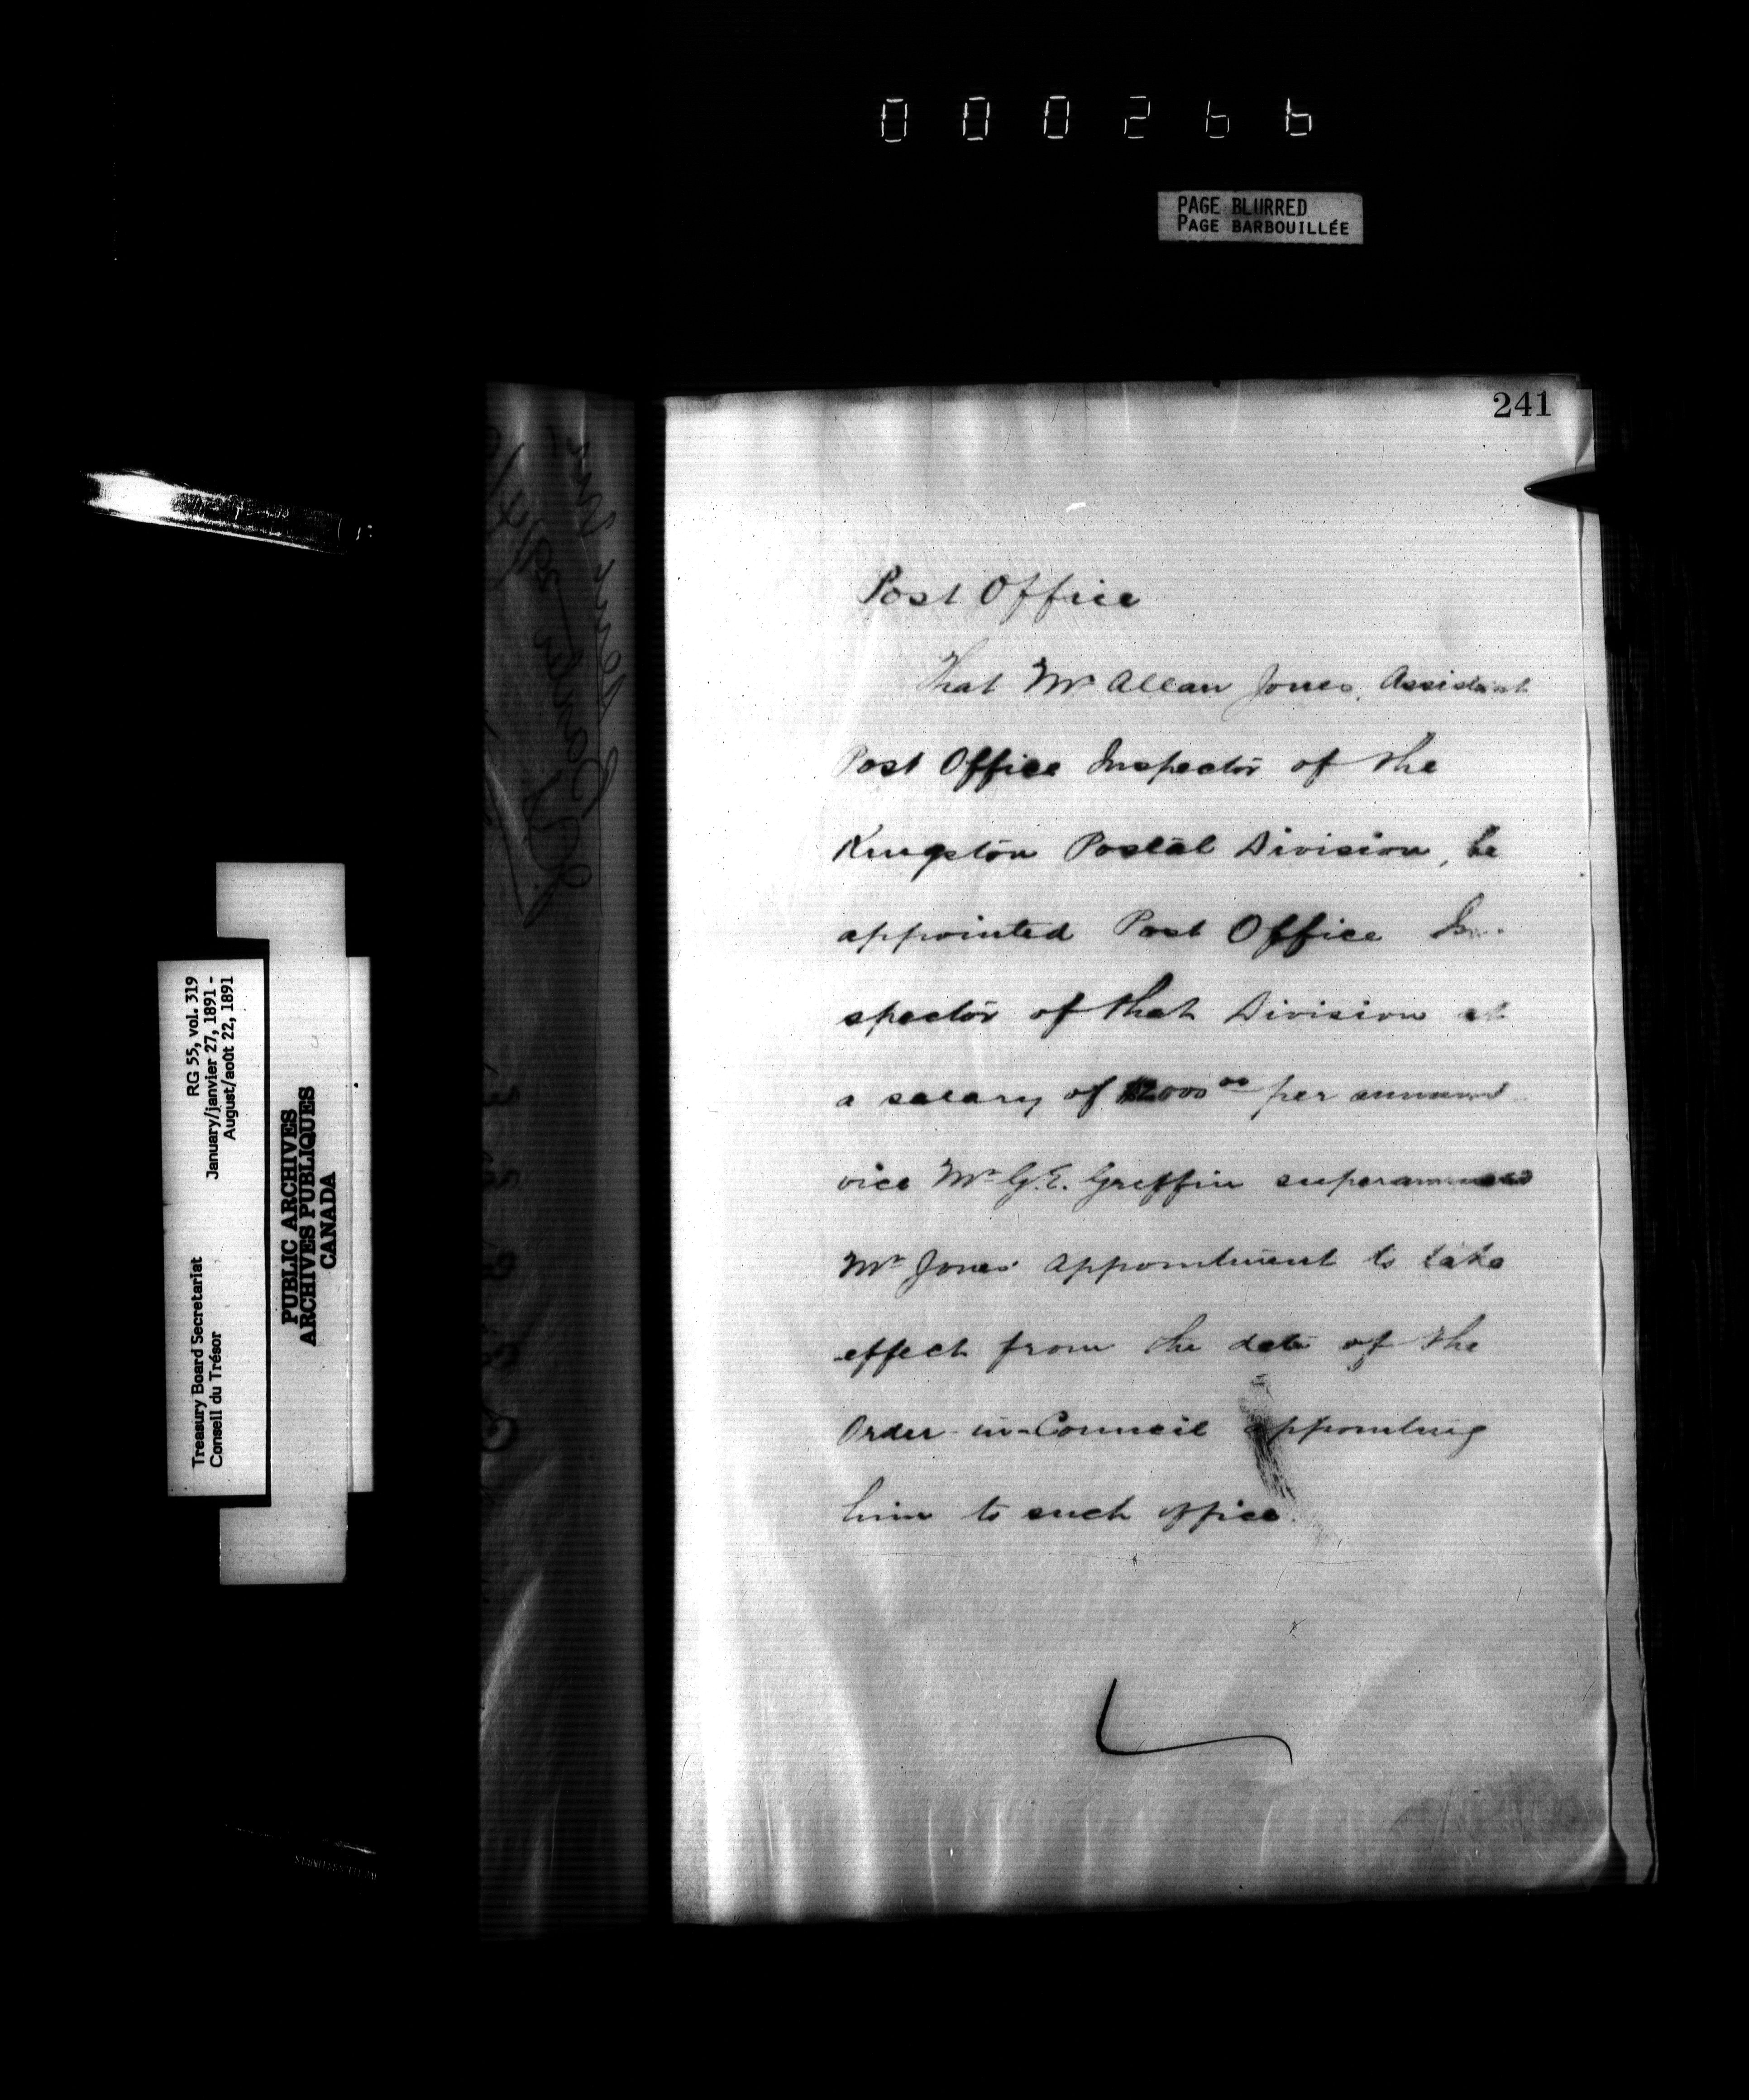 000266
PAGE BLURRED
PAGE BARBOUILLÉE
241
Post Office
That Mr Allan Jones, Assistant
Post Office Inspector of the
Kingston Postal Division, be
appointed Post Office In-
spector of that Division at
a salary of $2000 00 per annum
vice Mr G.E. Griffin superannuated
Mr Jones' appointment to take
effect from the date of the
Order-in-Council appointing
him to such office.
RG 55, vol. 319
January/janvier 27, 1891 -
August/août 22, 1891
Treasury Board Secretariat
Conseil du Trésor
PUBLIC ARCHIVES
ARCHIVES PUBLIQUES
CANADA